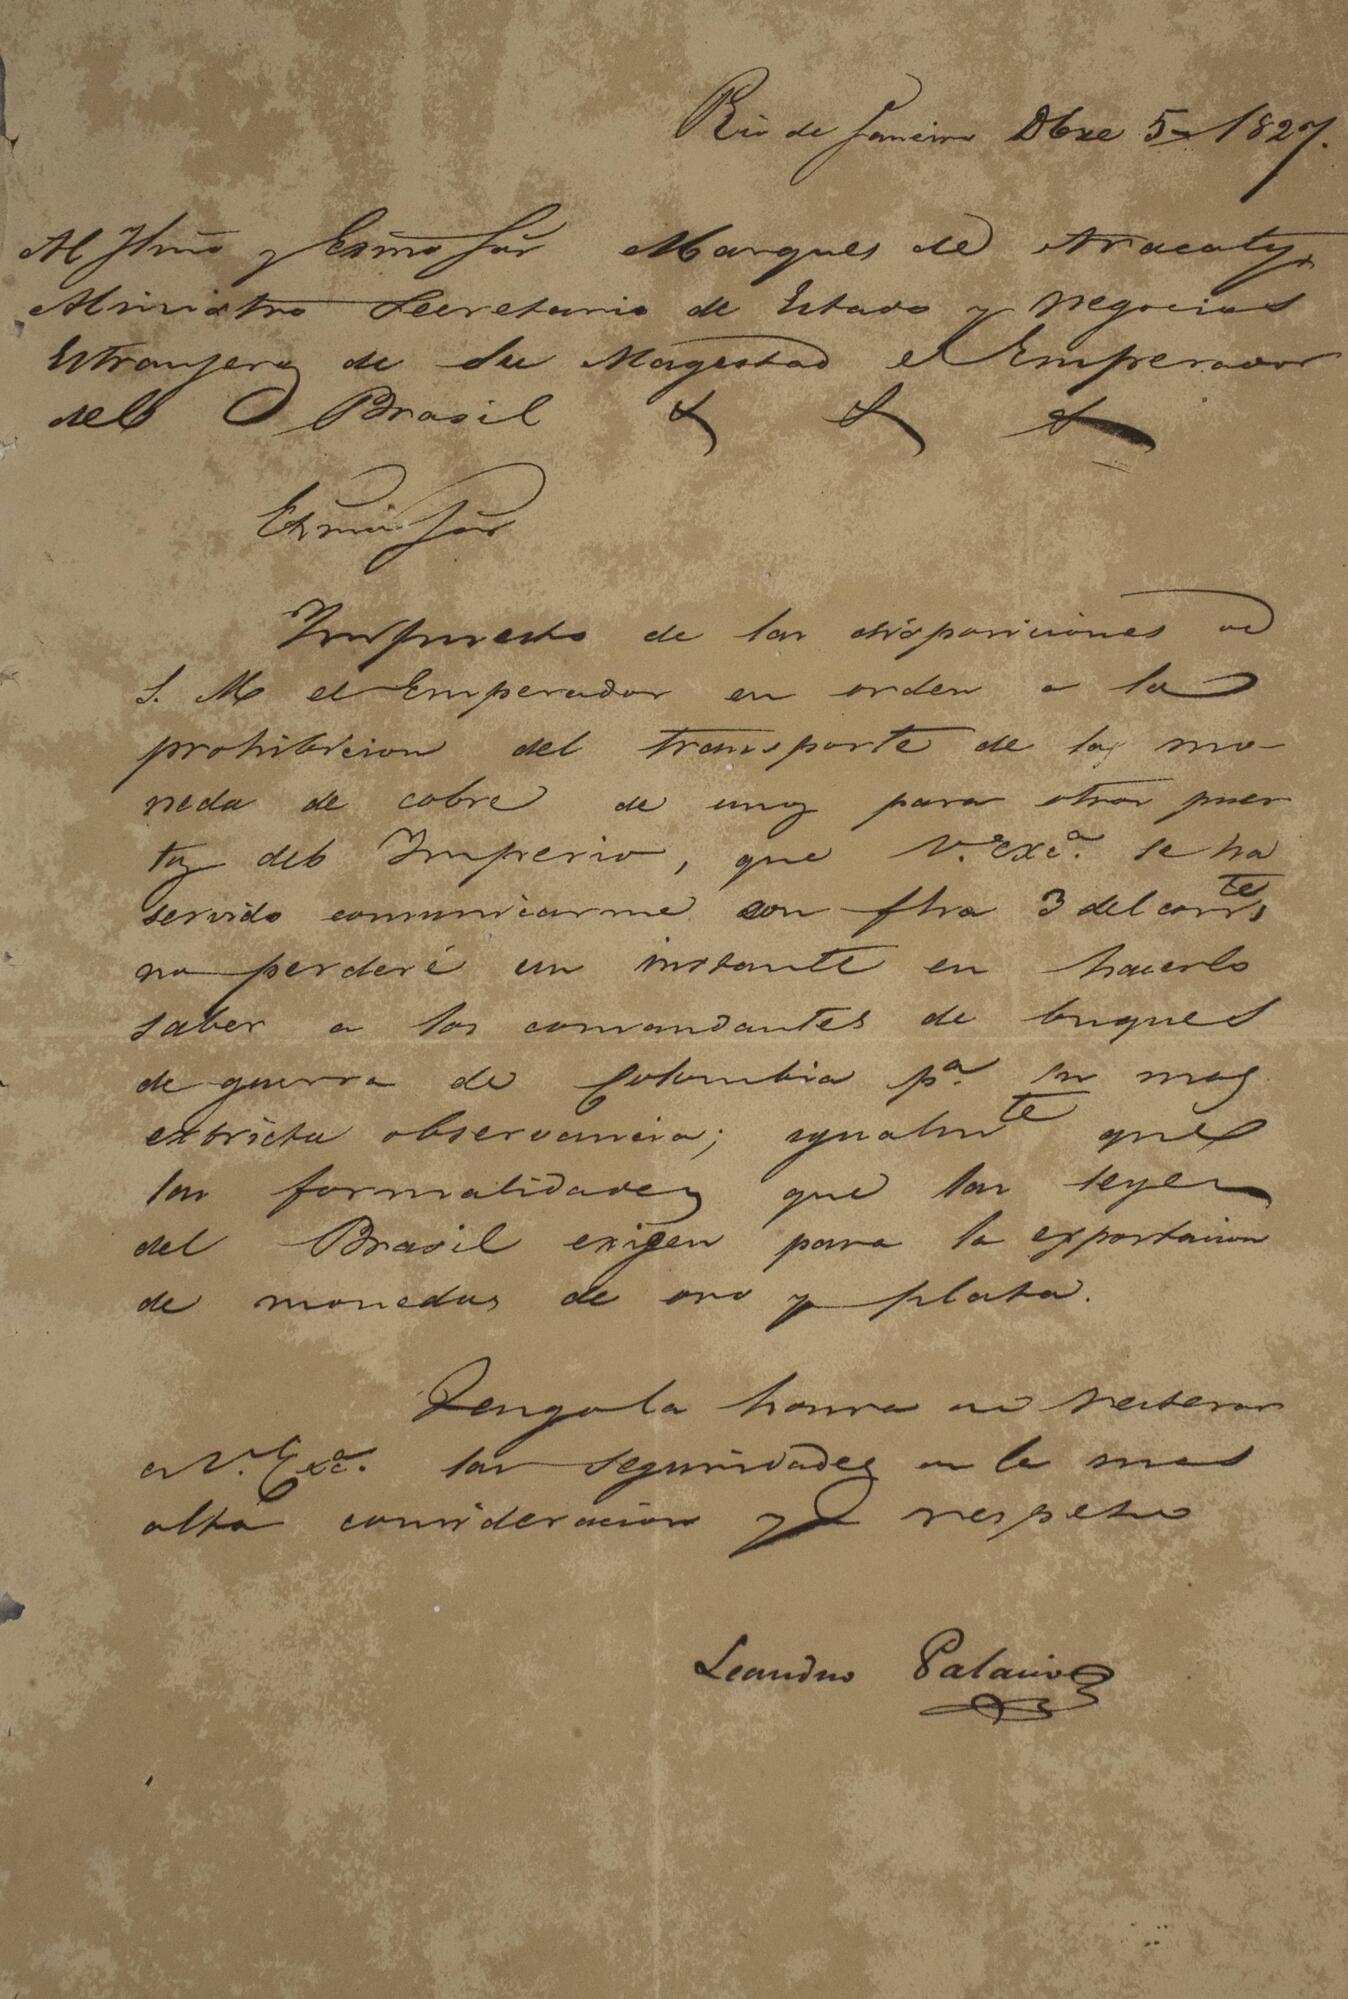 Rio de Janeiro Dbre 5 1827.
Al Ilmo y Exmo Sor Marques de Aracaty,
Ministro Secretario de Estado y negocios
Estranjeros de Su Magestad el Emperador
del Brasil & & &
Exmo Sor
Impuesto de las disposiciones de
S. M. el Emperador en orden a la
prohibicion del transporte de la mo-
neda de cobre de unos para otros puer
tos del Imperio, que V. Exc.ª se ha
servido comunicarme con fha 3 del corrte,
no perderé un instante en hacerlo
saber a los comandantes de buques
de guerra de Colombia pª. su mas
extricta observancia; igualmte que
las formalidades que las leyes
del Brasil exigen para la exportacion
de monedas de oro y plata.
Tengo la honra de reiterar
a V. Excª. las seguridades de la mas
alta consideracion y respeto
Leandro Palacios